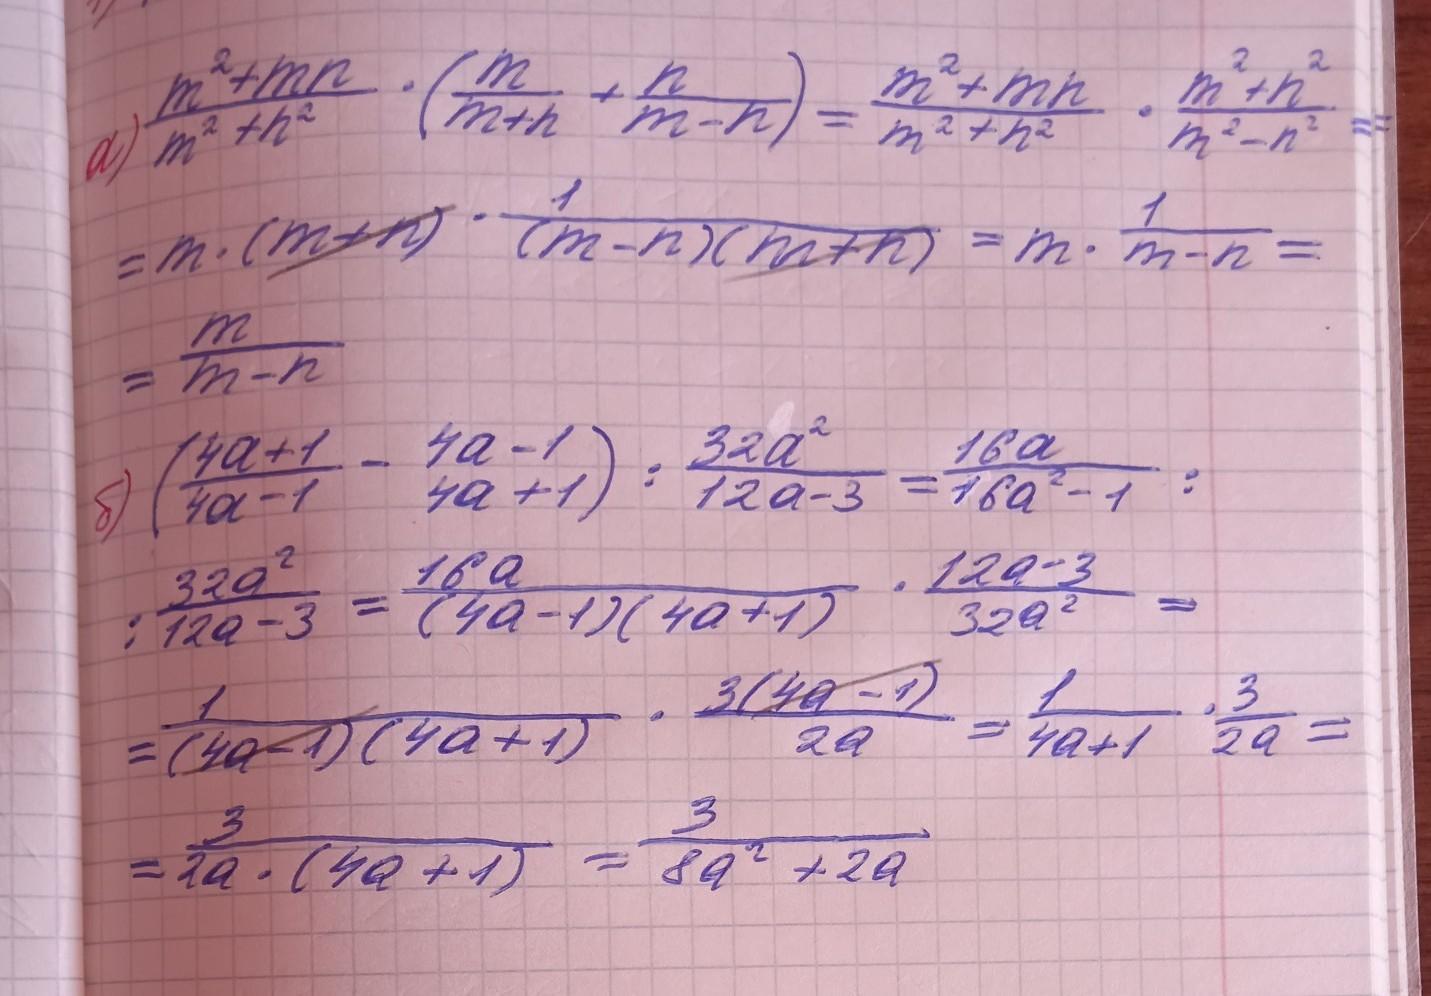 а) (m²+mn)/(m²+n²) · (m/(m+n) + n/(m-n)) = (m²+mn)/(m²+n²) · (m²+n²)/(m²-n²) =
= m · (m+n) · 1/((m-n)(m+n)) = m · 1/(m-n) =
= m/(m-n)
б) ((4a+1)/(4a-1) - (4a-1)/(4a+1)) : 32a²/(12a-3) = 16a/(16a²-1) :
: 32a²/(12a-3) = 16a/((4a-1)(4a+1)) · (12a-3)/32a² =
= 1/((4a-1)(4a+1)) · 3(4a-1)/2a = 1/(4a+1) · 3/2a =
= 3/(2a·(4a+1)) = 3/(8a²+2a)